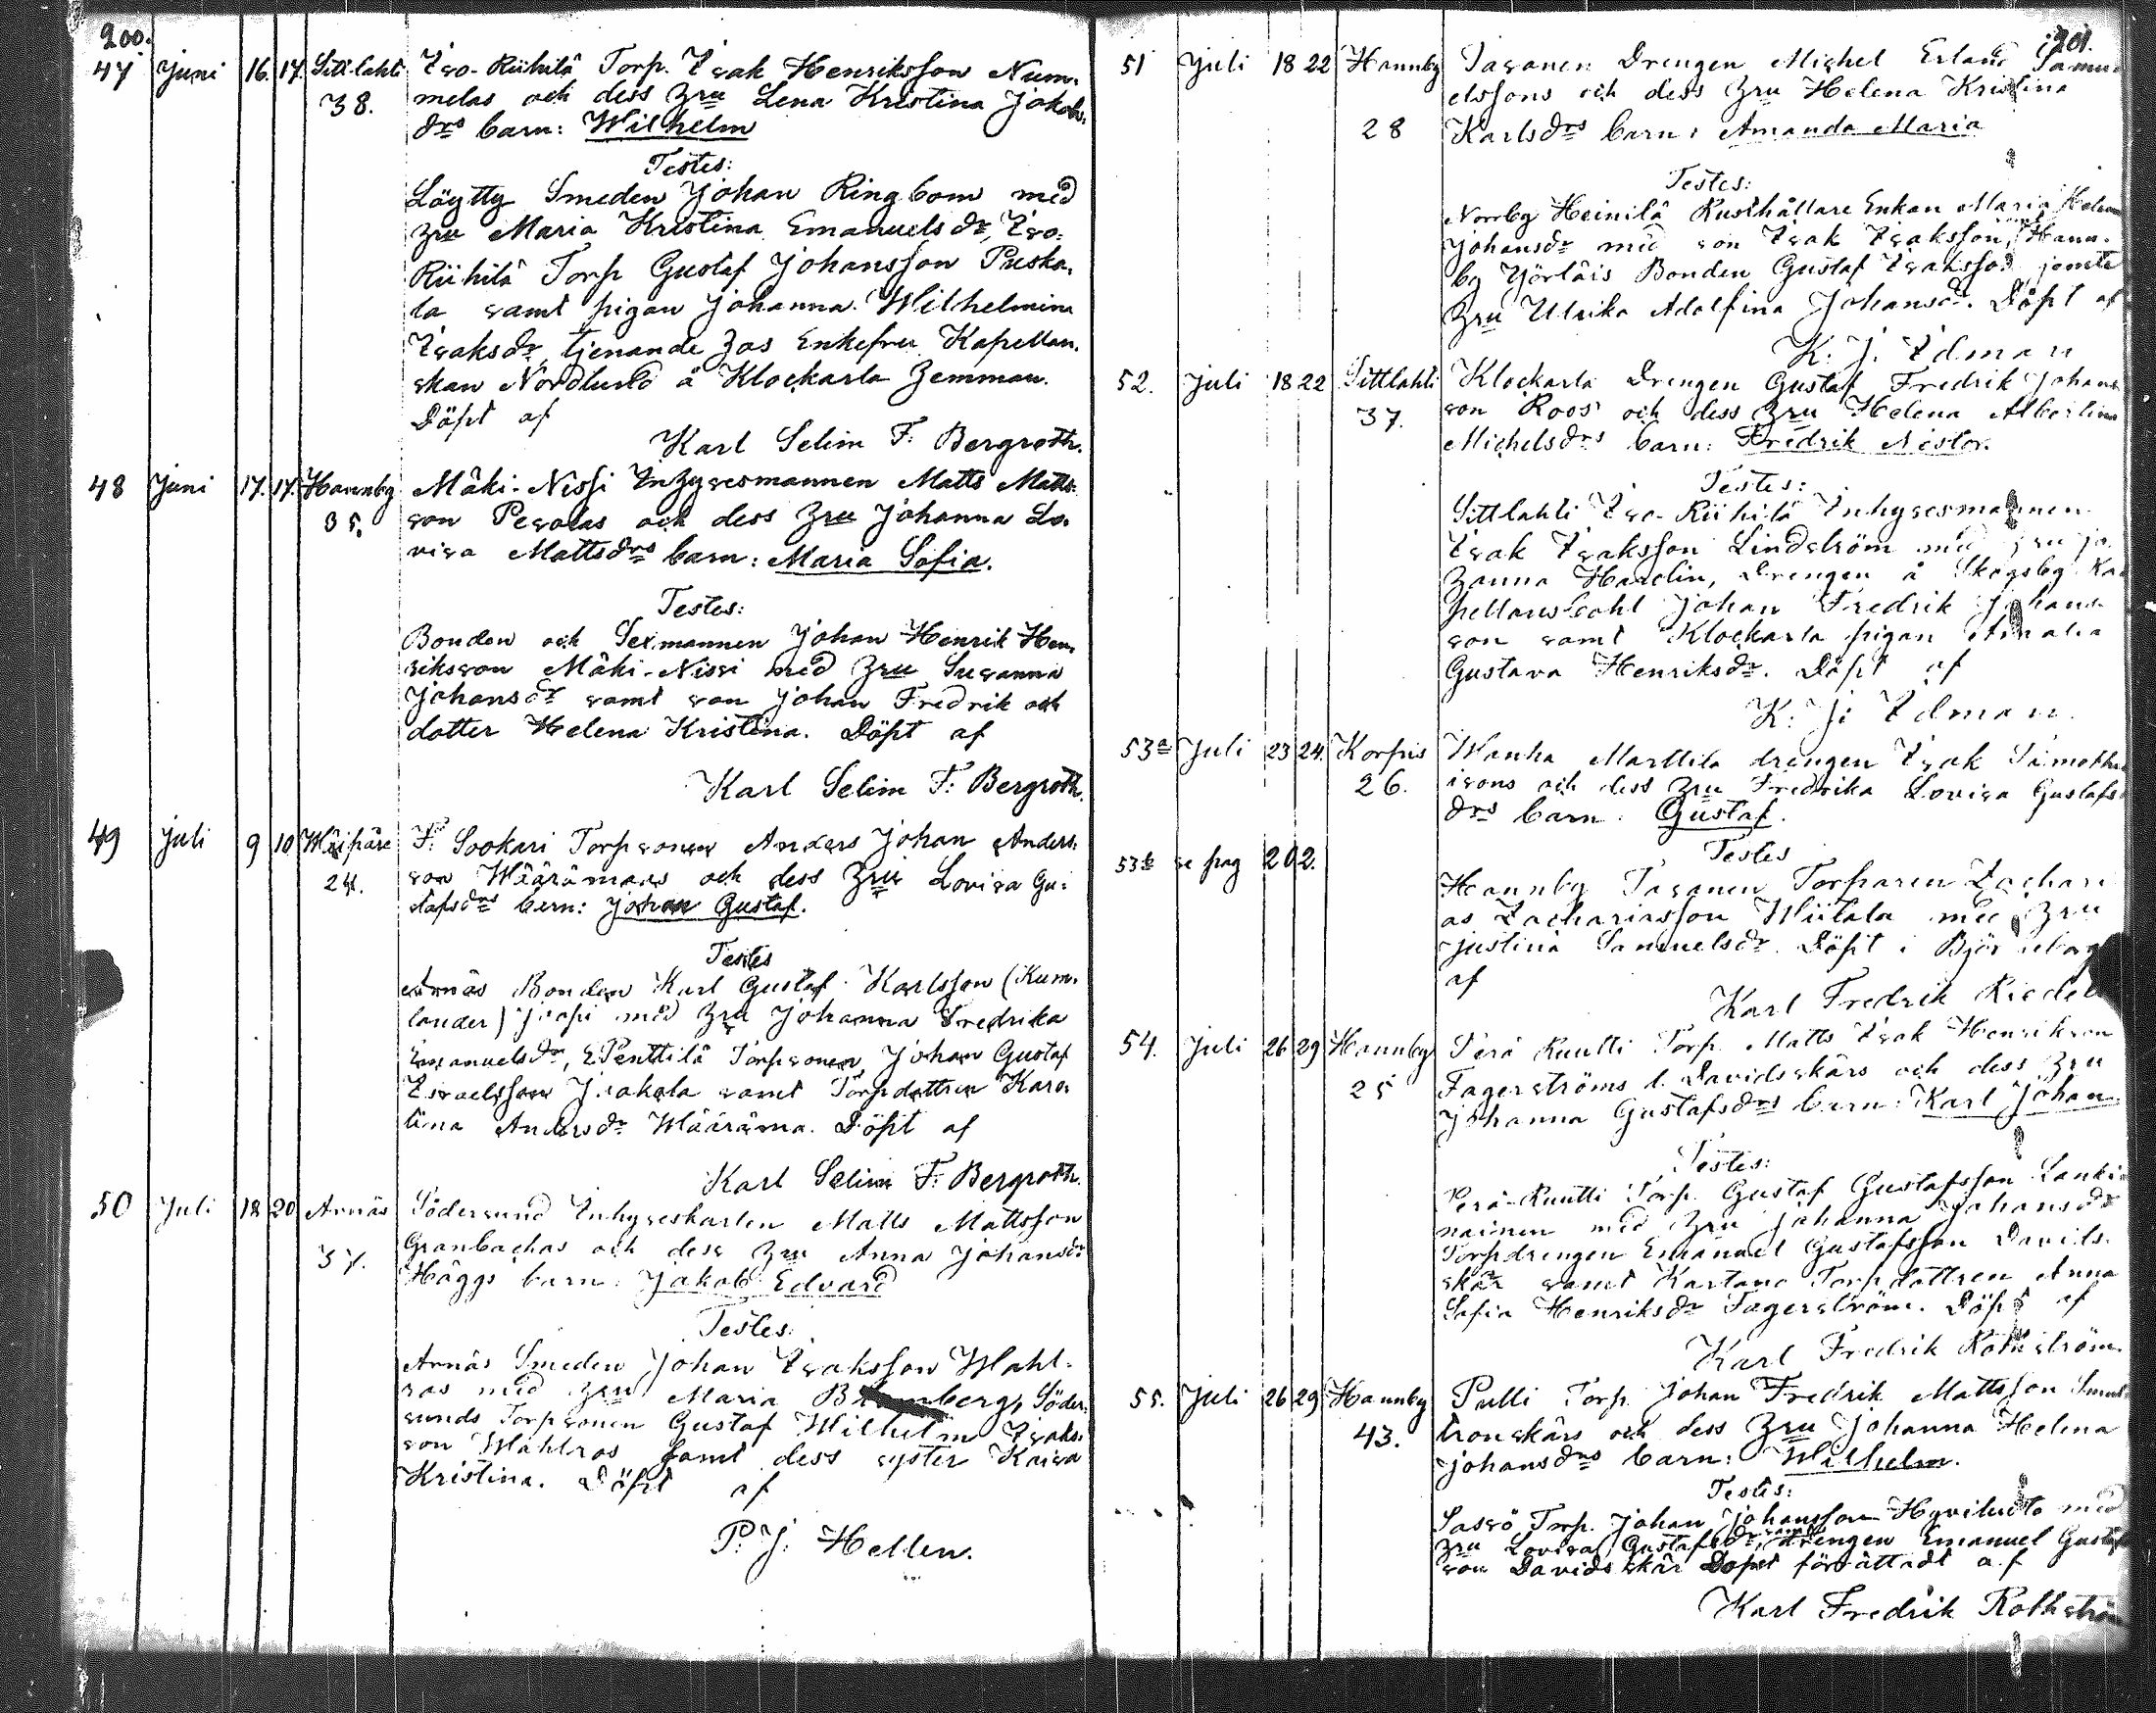 200.
47 Juni 16. 17. Sittlahti Iso-Riihilä Torp. Isak Henriksson Num-
38. melas och dess Hru Lena Kristina Jakobs-
drs barn: Wilhelm
Testes:
Löytty Smeden Johan Ringbom med
Hru Maria Kristina Emanuelsdr, Iso-
Riihilä Torp Gustaf Johansson Puska-
la samt pigan Johanna Wilhelmina
Isaksdr, tjenande hos Enkefru Kapellan-
skan Nordlund å Klockarla hemman.
Döpt af
Karl Selim F: Bergroth.
48 Juni 17. 17. Hannby Mäki-Nissi Inhysesmannen Matts Matts-
35. son Pesolas och dess Hru Johanna Lo-
visa Mattsdrs barn: Maria Sofia.
Testes:
Bonden och Sexmannen Johan Henrik Hen-
riksson Mäki-Nissi med Hru Susanna
Johansdr samt son Johan Fredrik och
dotter Helena Kristina. Döpt af
Karl Selim F: Bergroth.
49 Juli 9 10 F: Sookari Torpsonen Anders Johan Anders-
24. son Wäärämaas och dess Hru Lovisa Gu-
stafsdrs barn: Johan Gustaf.
Testes
Arnäs Bonden Karl Gustaf Karlsson (Kum-
lander) Juopi med Hru Johanna Fredrika
Emanuelsdr, E Penttilä Torpsonen Johan Gustaf
Israelsson Jaakola samt Torpdottren Karo-
lina Andersdr Wääräma. Döpt af
Karl Selim F: Bergroth.
50 Juli 18 20 Arnäs Södersund Inhyseskarlen Matts Mattsson
37. Granbackas och dess Hru Anna Johansdr
Häggs barn: Jakob Edvard
Testes:
Arnäs Smeden Johan Isaksson Wahl-
ros med Hru Maria Söder-
sunds Torpsonen Gustaf Wilhelm Isaks-
son Wahlros samt dess syster Kaisa
Kristina. Döpt af
P: J: Hellen.
201.
51 Juli 18 22 Hannby Tasanen Drengen Michel Erland Samu-
elssons och dess Hru Helena Kristina
28 Karlsdrs barn: Amanda Maria
Testes:
Norrby Heinilä Rusthållare Enkan Maria Helena
Johansdr med son Isak Isaksson, Hann-
by Yörläis Bonden Gustaf Isaksson jemte
Hru Ulrika Adolfina Johansdr. Döpt af
K: J. Idman
52. Juli 18 22 Sittlahti Klockarla Drengen Gustaf Fredrik Johans-
37. son Roos och dess Hru Helena Albertina
Michelsdrs barn: Fredrik Nestor.
Testes:
Sittlahti Iso-Riihilä Inhysesmannen
Isak Isaksson Lindström med Hru Jo-
hanna Hardin, Drengen å Skogsby Ka-
pellansbohl Johan Fredrik Johans-
son samt Klockarla pigan Amalia
Gustava Henriksdr. Döpt af
K: J: Idman.
53a Juli 23 24. Korpis Wanha Marttila drengen Isak Timothe-
26. isons och dess Hru Fredrika Lovisa Gustafs-
drs barn: Gustaf.
53b se pag 202.
Testes
Hannby Tasanen Torparen Zachari-
as Zachariasson Wiitala med Hru
Justina Samuelsdr. Döpt i Björneborg
af
Karl Fredrik Riedel
54. Juli 26 29 Hannby Perä Ruutti Torp. Matts Isak Henriksson
25 Fagerströms l. Davidsskärs och dess Hru
Johanna Gustafsdrs barn: Karl Johan
Testes:
Perä-Ruutti Torp. Gustaf Gustafsson Lanki-
nainen med Hru Johanna Johansdr
Torpdrengen Emanuel Gustafsson Davids-
skär samt Kartano Torpdottren Anna
Sofia Henriksdr Fagerström. Döpt af
Karl Fredrik Rothström.
55. Juli 26 29 Hannby Pulli Torp. Johan Fredrik Mattsson
43. tronskärs och dess Hru Johanna Helena
Johansdrs barn: Wilhelm.
Testes:
Sassö Torp. Johan Johansson Hyviluoto med
Hru Lovisa Gustafsdr, samt drengen Emanuel Gustaf-
son Davidsskär Dopet förrättadt af
Karl Fredrik Rothström